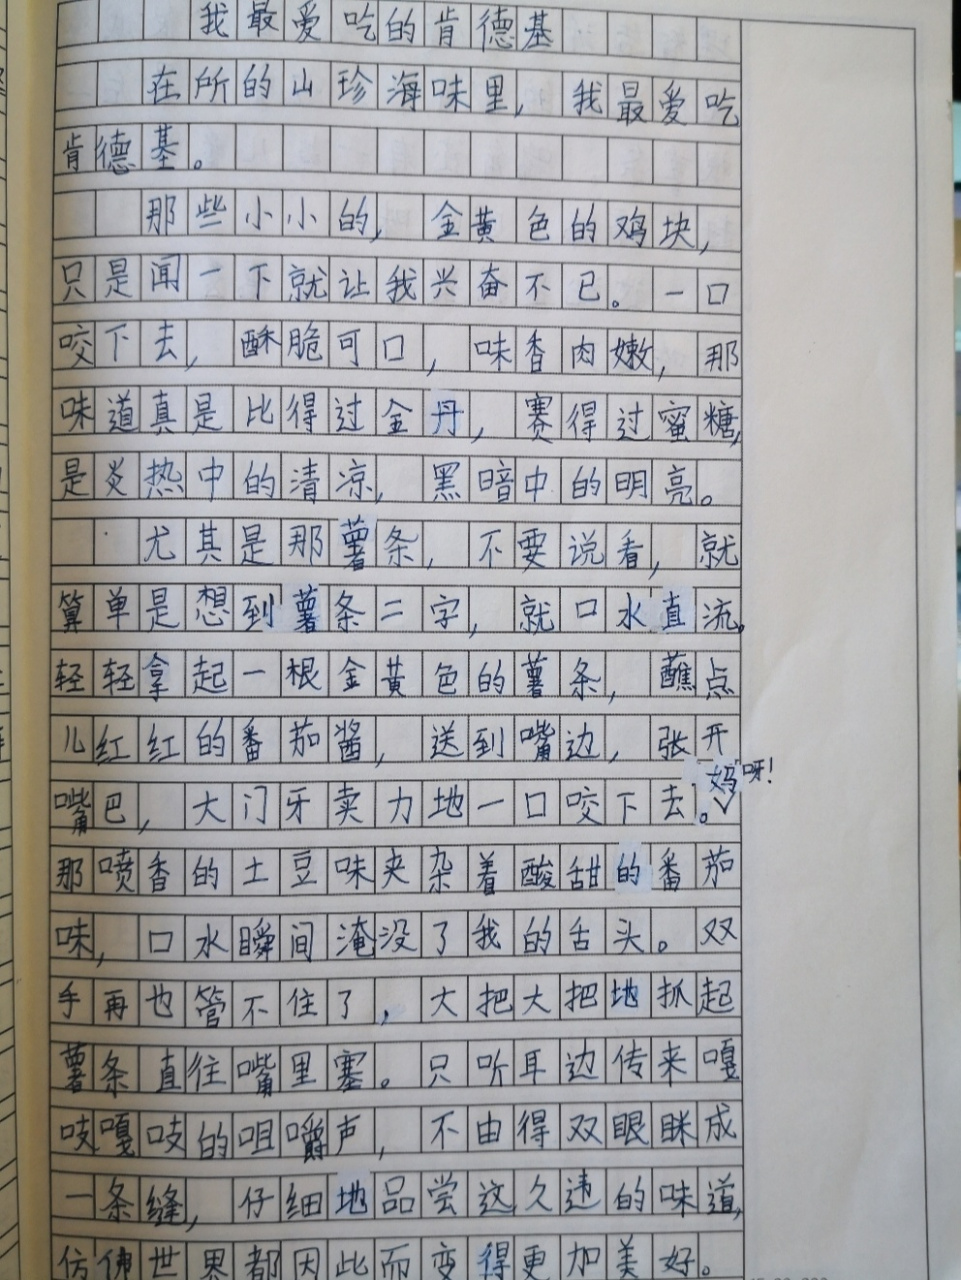 我最爱吃的肯德基
在所的山珍海味里，我最爱吃
肯德基。
那些小小的，金黄色的鸡块，
只是闻一下就让我兴奋不已。一口
咬下去，酥脆可口，味香肉嫩，那
味道真是比得过金丹，赛得过蜜糖，
是炎热中的清凉，黑暗中的明亮。
尤其是那薯条，不要说看，就
算单是想到薯条二字，就口水直流。
轻轻拿起一根金黄色的薯条，蘸点
儿红红的番茄酱，送到嘴边，张开
妈呀！
嘴巴，大门牙卖力地一口咬下去。
那喷香的土豆味夹杂着酸甜的番茄
味，口水瞬间淹没了我的舌头。双
手再也管不住了，大把大把地抓起
薯条直往嘴里塞。只听耳边传来嘎
吱嘎吱的咀嚼声，不由得双眼眯成
一条缝，仔细地品尝这久违的味道，
仿佛世界都因此而变得更加美好。